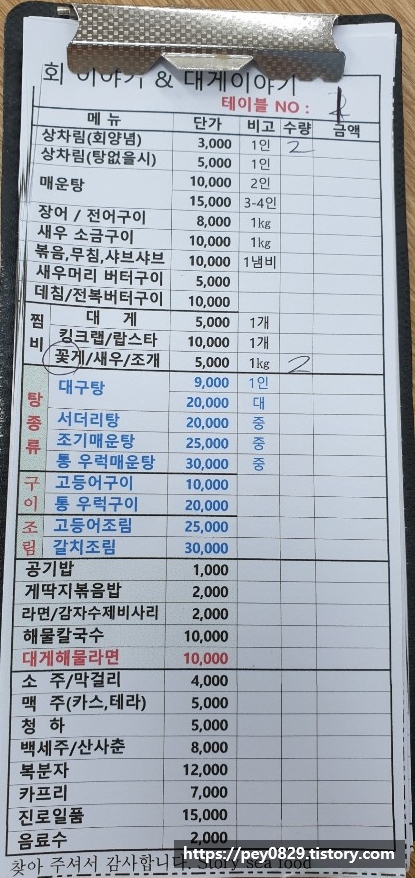 회 이야기 & 대게이야기
테이블 NO :
메 뉴 단가 비고 수량 금액
상차림(회양념) 3,000 1인 2
상차림(탕없을시) 5,000 1인
매운탕 10,000 2인
15,000 3-4인
장어 / 전어구이 8,000 1kg
새우 소금구이 10,000 1kg
볶음,무침,샤브샤브 10,000 1냄비
새우머리 버터구이 5,000
데침/전복버터구이 10,000
찜비
대 게 5,000 1개
킹크랩/랍스타 10,000 1개
꽃게/새우/조개 5,000 1kg 2
탕종류
대구탕 9,000 1인
20,000 대
서더리탕 20,000 중
조기매운탕 25,000 중
통 우럭매운탕 30,000 중
구이
고등어구이 10,000
통 우럭구이 20,000
조림
고등어조림 25,000
갈치조림 30,000
공기밥 1,000
게딱지볶음밥 2,000
라면/감자수제비사리 2,000
해물칼국수 10,000
대게해물라면 10,000
소 주/막걸리 4,000
맥 주(카스,테라) 5,000
청 하 5,000
백세주/산사춘 8,000
복분자 12,000
카프리 7,000
진로일품 15,000
음료수 2,000
찾아 주셔서 감사합니다. Story sea food
https://pey0829.tistory.com